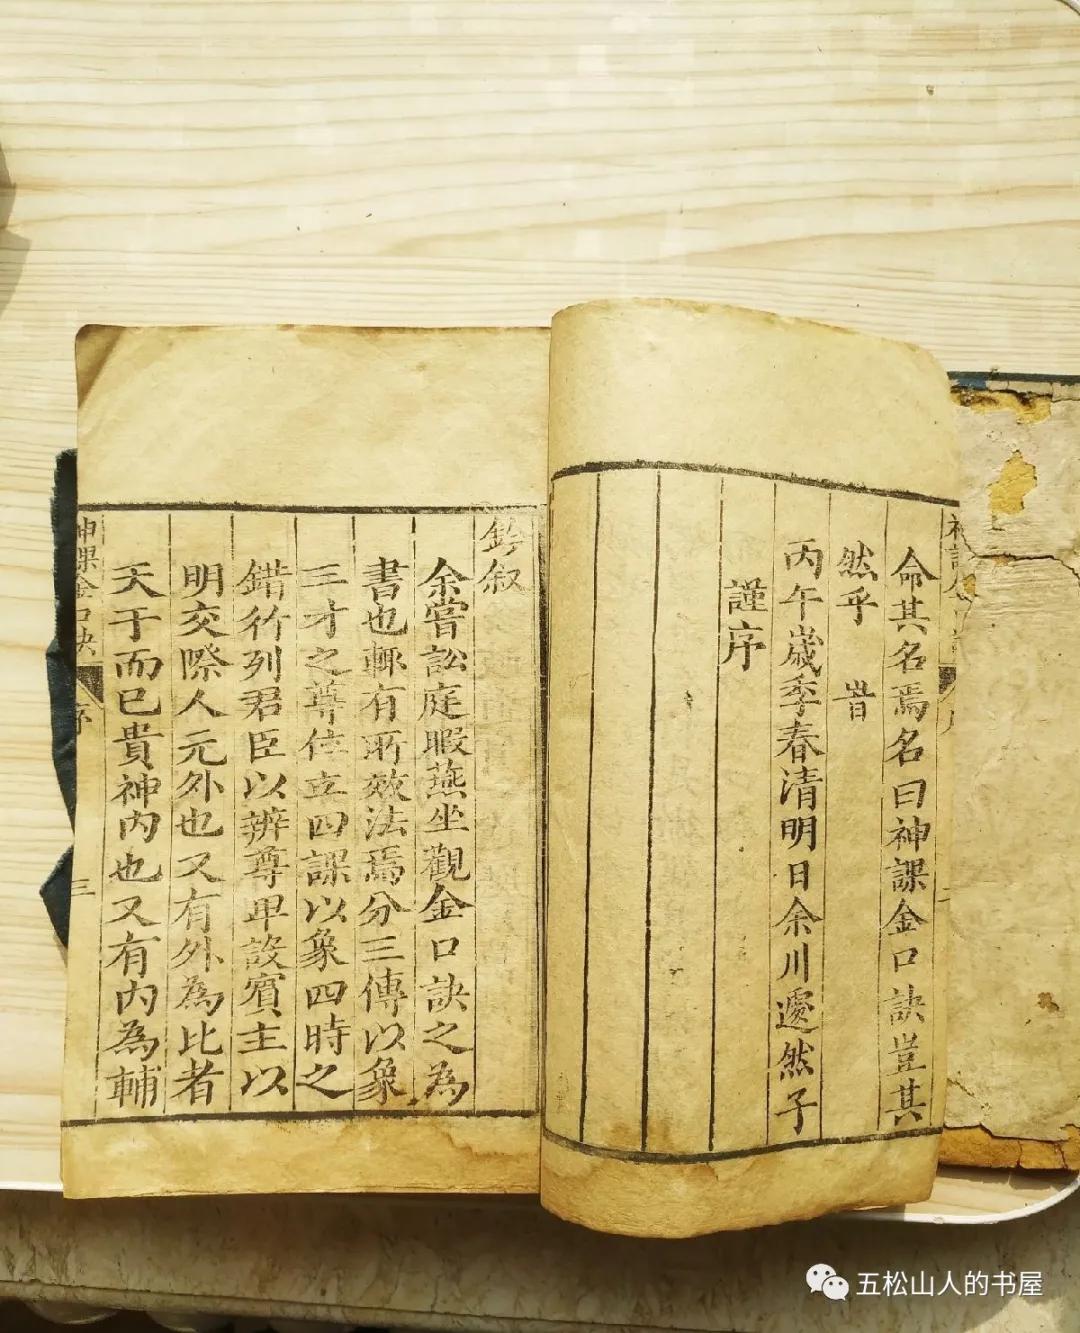 命其名焉名曰神課金口訣豈其
然乎 旹
丙午歲季春清明日余川遽然子
謹序
叙
余嘗訟庭暇燕坐觀金口訣之為
書也輒有所效法焉分三傳以象
三才之尊位立四課以象四時之
錯行列君臣以辨尊卑設賓主以
明交際人元外也又有外為比者
天干而已貴神内也又有内為輔
神課金口訣 序 三
五松山人的书屋